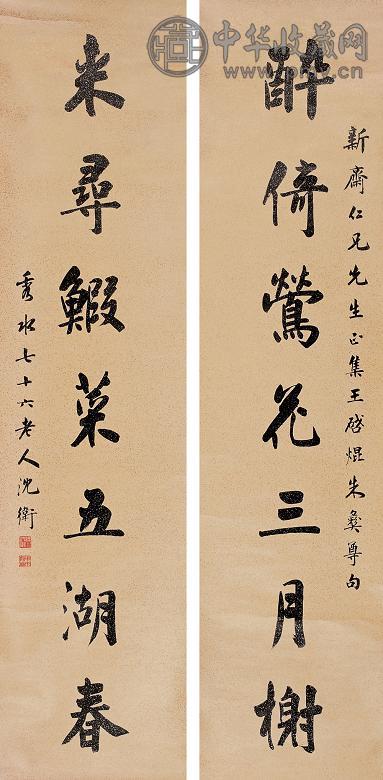 中华收藏网
新齋仁兄先生正集王啓焜朱彝尊句
醉倚鶯花三月榭
来尋鰕菜五湖春
秀水七十六老人沈衛